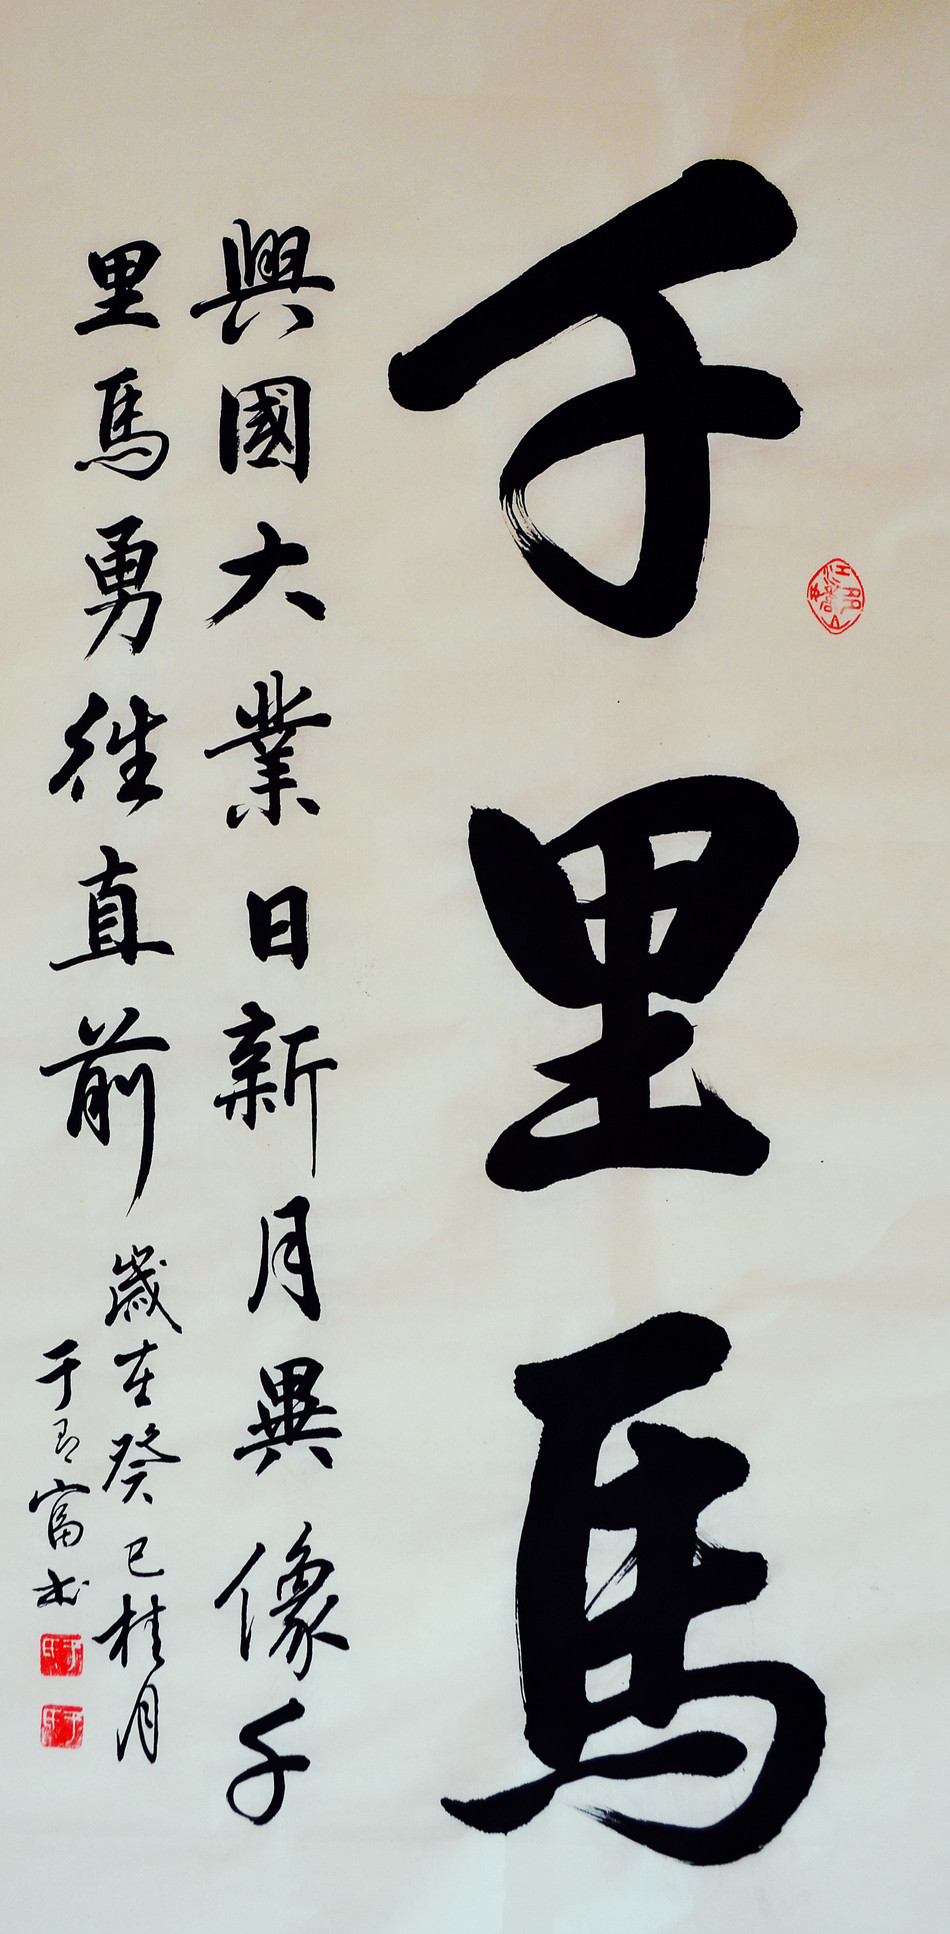 千里馬
興國大業日新月異像千
里馬勇往直前
歲在癸巳桂月
于富书